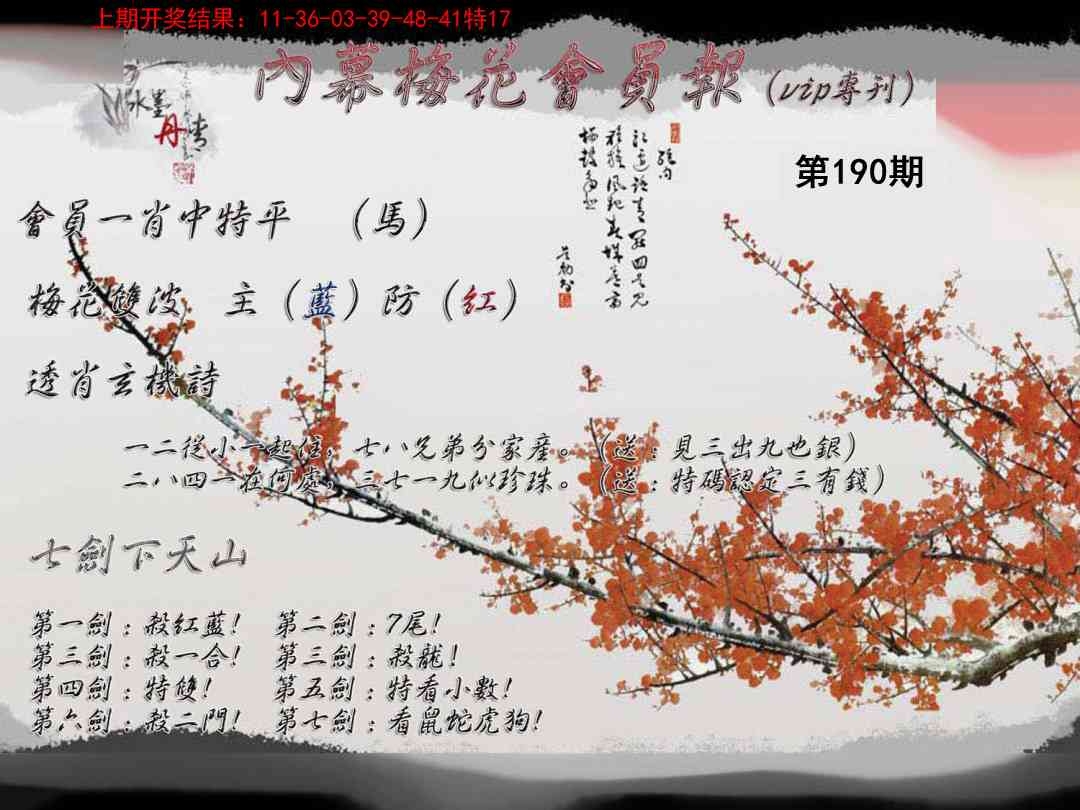 上期开奖结果：11-36-03-39-48-41特17
內幕梅花會員報（vip專刊）
水墨
丹青
第190期
會員一肖中特平 （馬）
梅花雙波 主（藍）防（紅）
透肖玄機詩
一二從小一起住，七八兄弟分家產。（送：見三出九也銀）
二八四一在何處，三七一九似珍珠。（送：特碼認定三有錢）
七劍下天山
第一劍：殺紅藍！ 第二劍：7尾！
第三劍：殺一合！ 第三劍：殺龍！
第四劍：特雙！ 第五劍：特看小數！
第六劍：殺二門！ 第七劍：看鼠蛇虎狗！